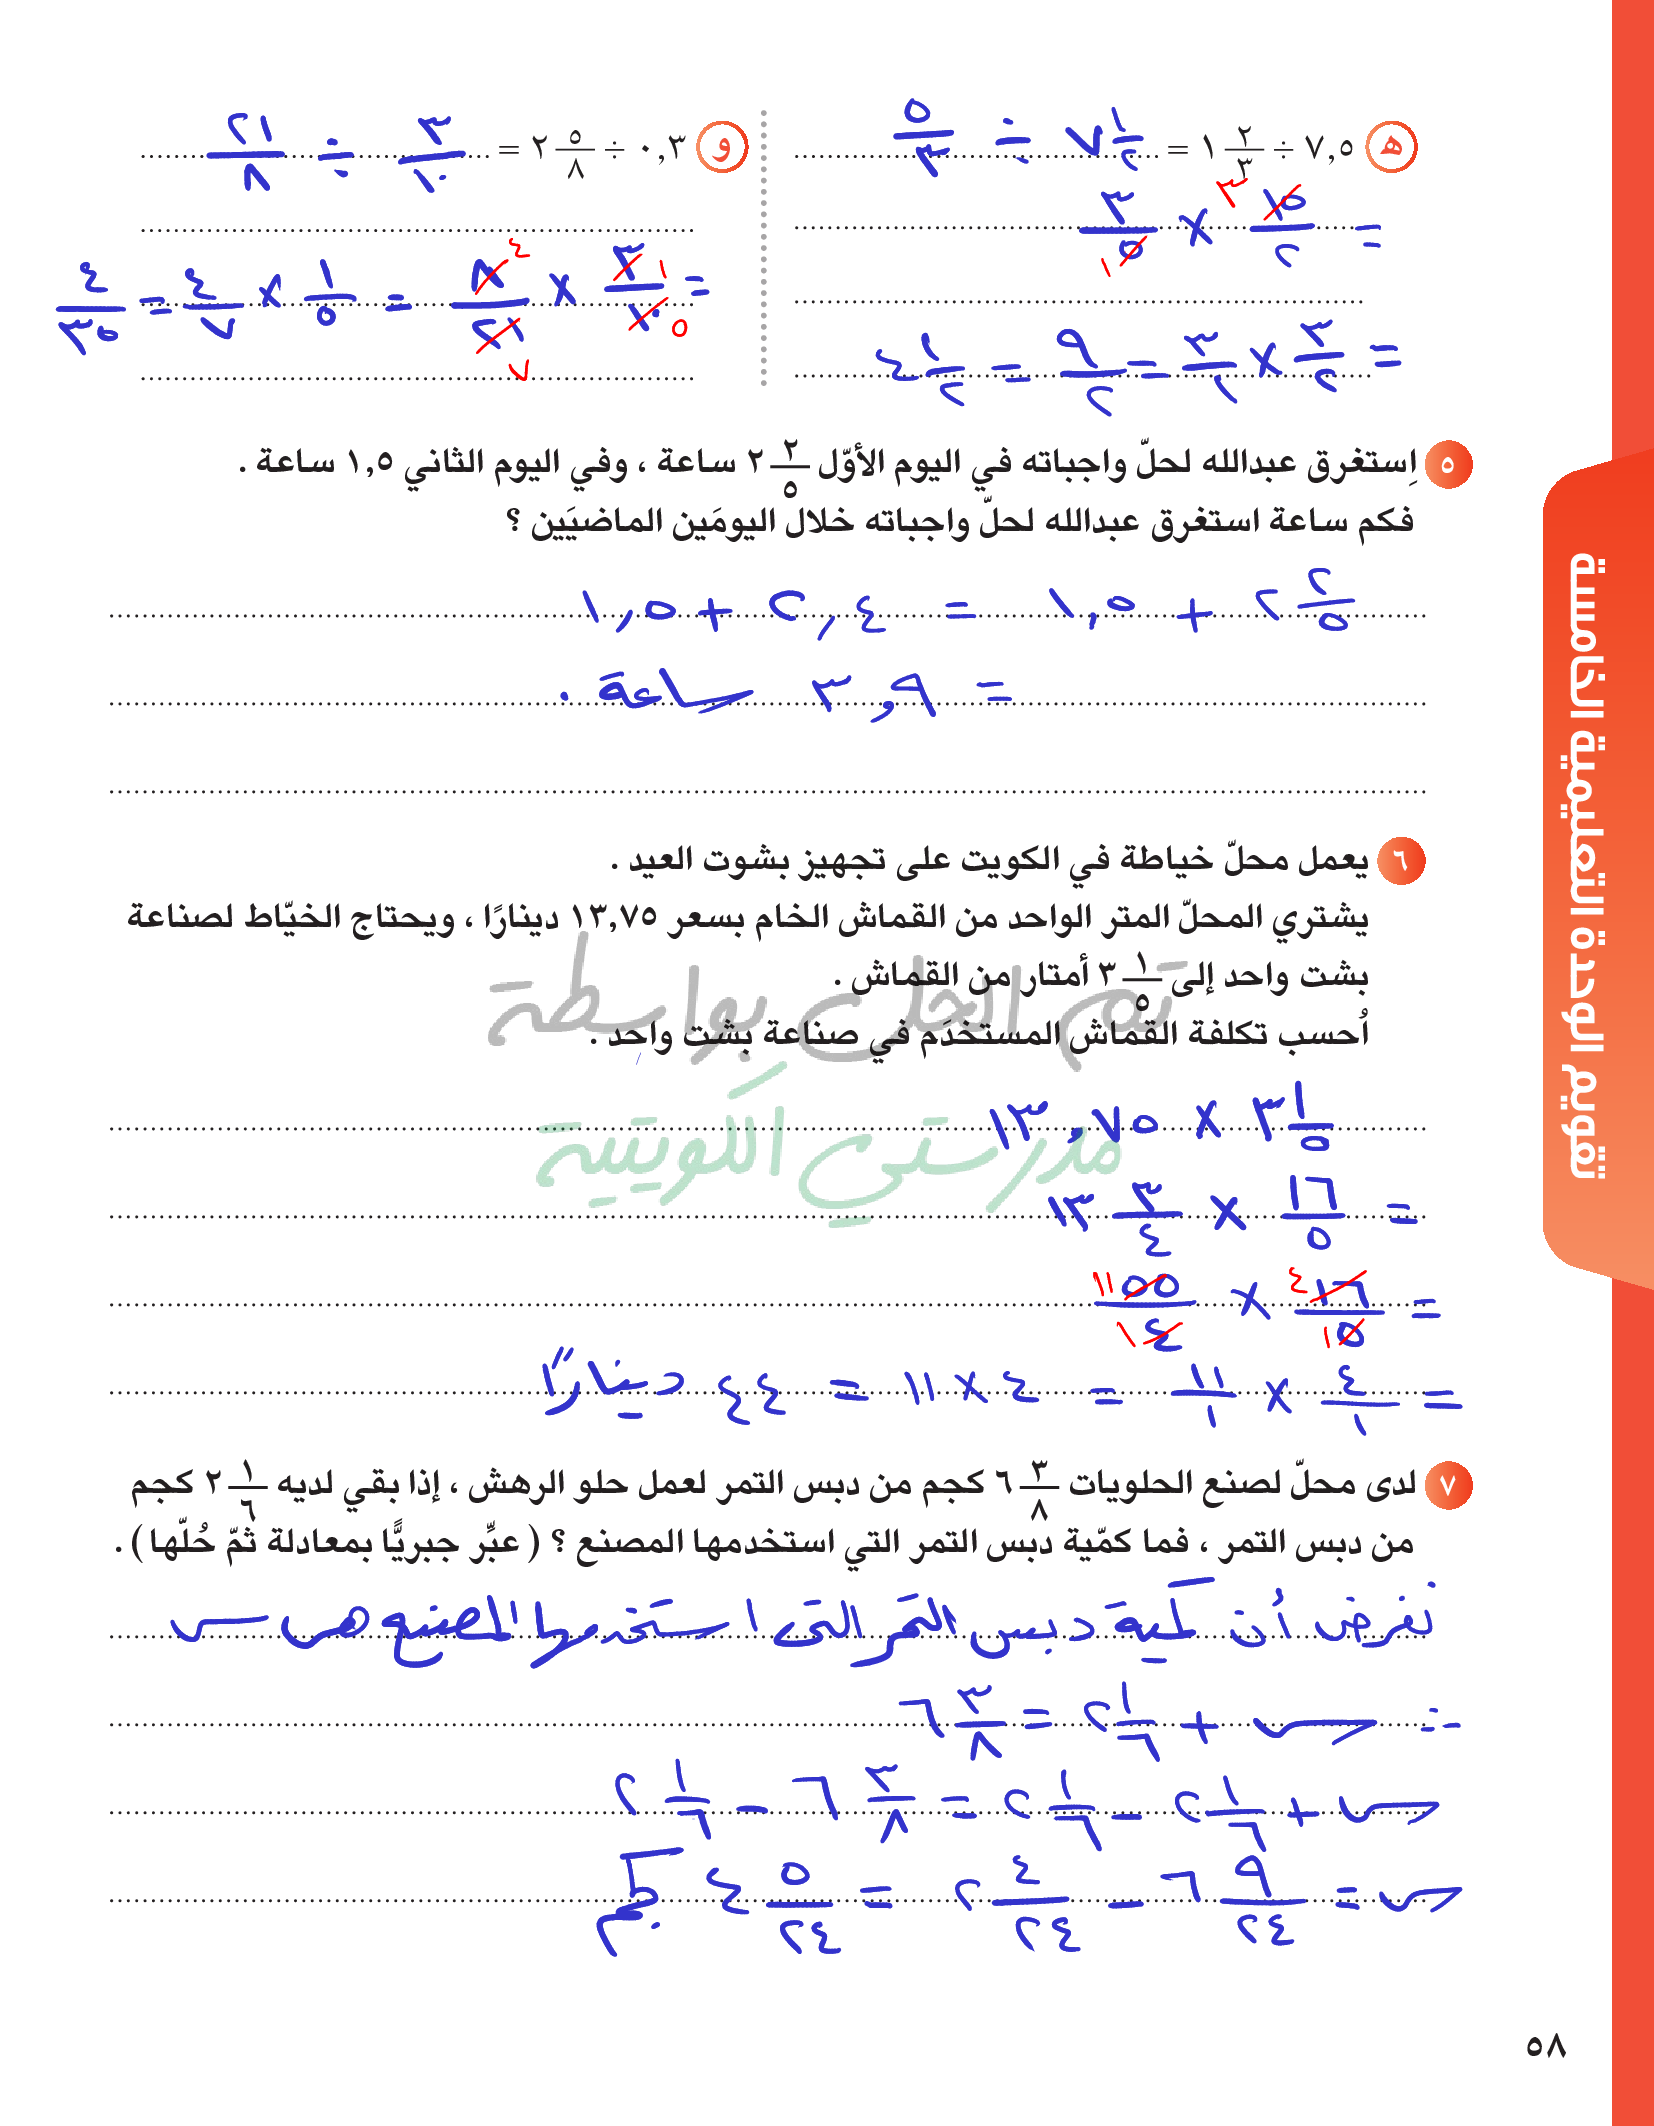 هـ ٧,٥ ÷ ١ ٢/٣ = ٧ ١/٢ ÷ ٥/٣
= ١٥/٢ × ٣/٥ ٣ ١
= ٣/٢ × ٣/١ = ٩/٢ = ٤ ١/٢
و ٠,٣ ÷ ٢ ٥/٨ = ٣/١٠ ÷ ٢١/٨
= ٣/١٠ × ٨/٢١ = ١/٥ × ٤/٧ = ٤/٣٥ ١ ٥ ٤ ٧
٥ اِستغرق عبدالله لحلّ واجباته في اليوم الأوّل ٢ ٢/٥ ساعة ، وفي اليوم الثاني ١,٥ ساعة .
فكم ساعة استغرق عبدالله لحلّ واجباته خلال اليومَين الماضيَين ؟
٢ ٢/٥ + ١,٥ = ٢,٤ + ١,٥
= ٣,٩ ساعة .
٦ يعمل محلّ خياطة في الكويت على تجهيز بشوت العيد .
يشتري المحلّ المتر الواحد من القماش الخام بسعر ١٣,٧٥ دينارًا ، ويحتاج الخيّاط لصناعة
بشت واحد إلى ٣ ١/٥ أمتار من القماش .
اُحسب تكلفة القماش المستخدَم في صناعة بشت واحد .
تم الحل بواسطة
مدرستي الكويتية
٣ ١/٥ × ١٣,٧٥
= ١٦/٥ × ١٣ ٣/٤
= ١٦/٥ × ٥٥/٤ ٤ ١ ١١ ١
= ٤/١ × ١١/١ = ٤ × ١١ = ٤٤ دينارًا
٧ لدى محلّ لصنع الحلويات ٦ ٣/٨ كجم من دبس التمر لعمل حلو الرهش ، إذا بقي لديه ٢ ١/٦ كجم
من دبس التمر ، فما كمّية دبس التمر التي استخدمها المصنع ؟ ( عبِّر جبريًّا بمعادلة ثمّ حُلّها ) .
نفرض أن كمية دبس التمر التى استخدمها المصنع هى س
∴ س + ٢ ١/٦ = ٦ ٣/٨
س + ٢ ١/٦ - ٢ ١/٦ = ٦ ٣/٨ - ٢ ١/٦
س = ٦ ٩/٢٤ - ٢ ٤/٢٤ = ٤ ٥/٢٤ كجم
تقويم الوحدة التعليمية الخامسة
٥٨